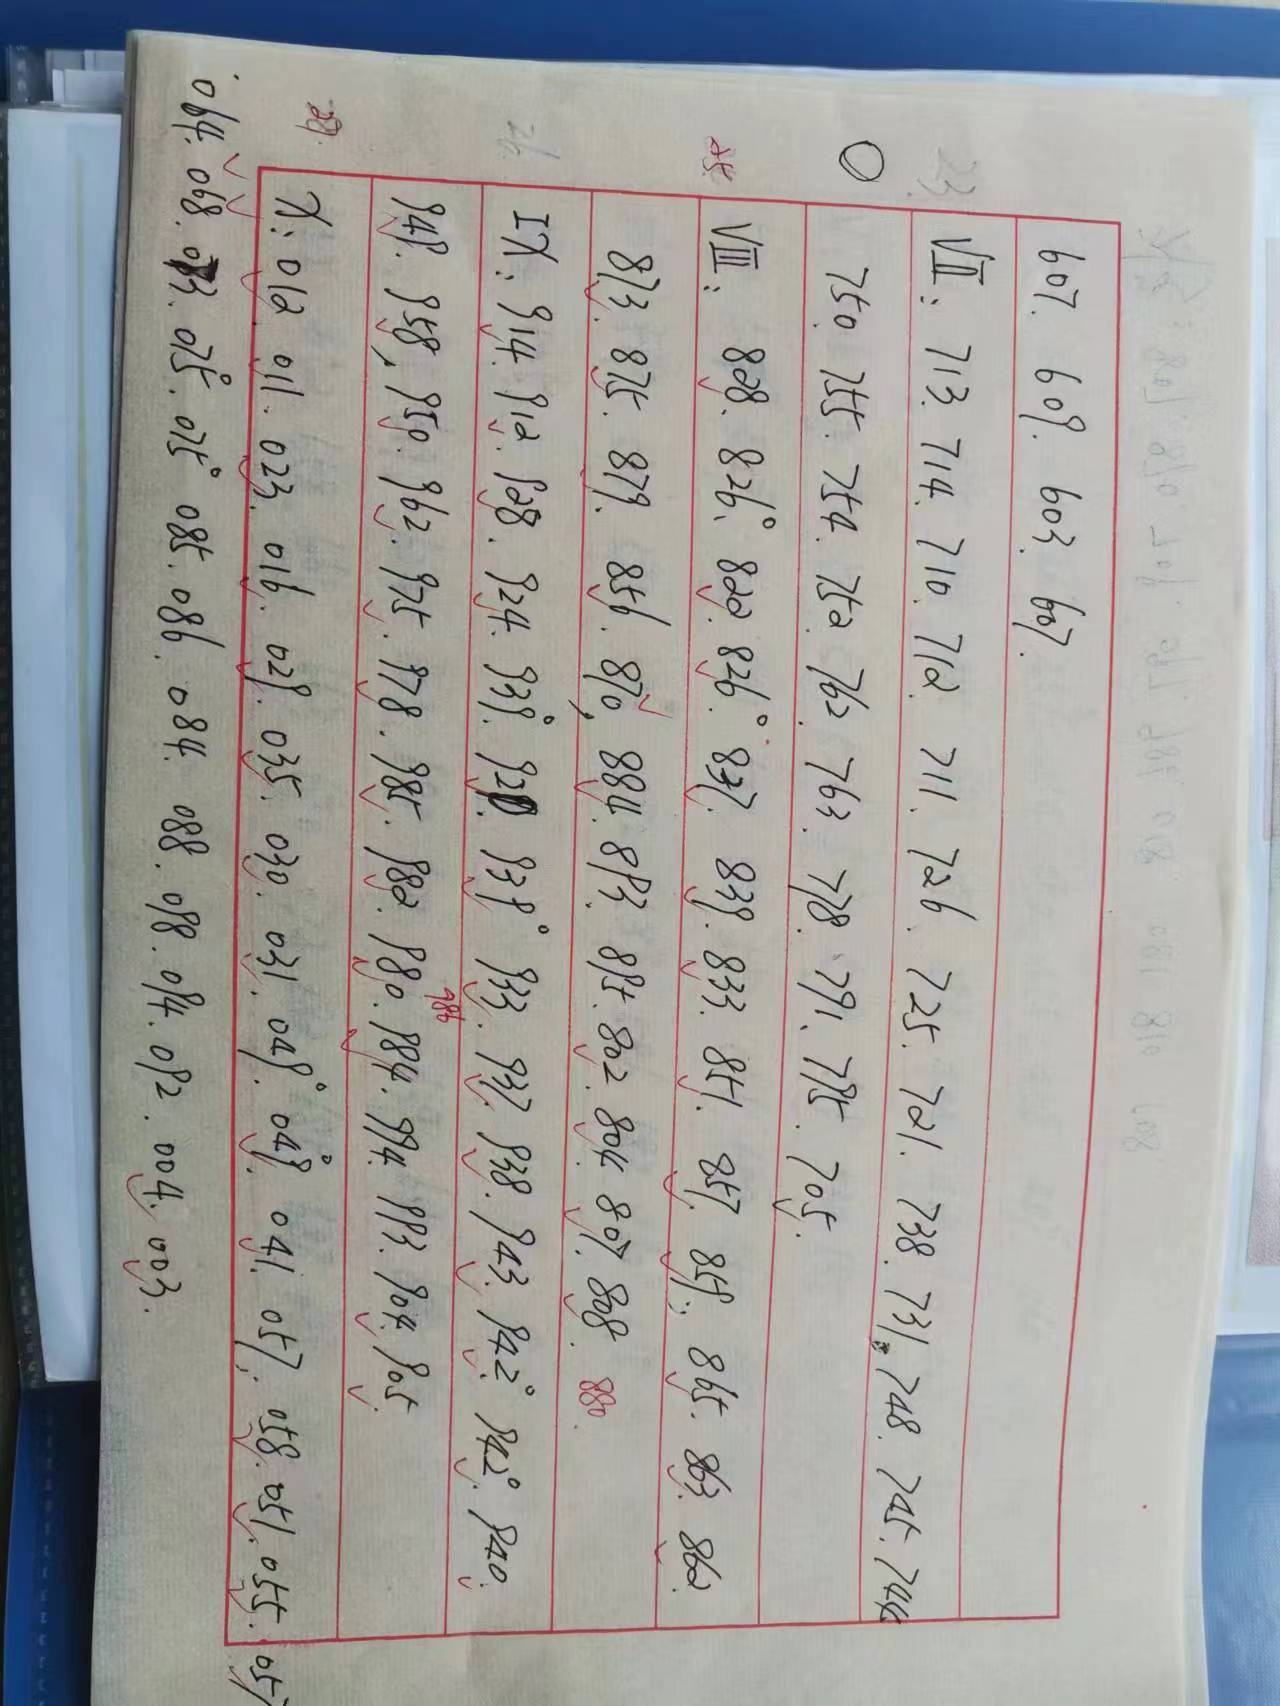 607. 609. 603. 607.
23.
VII: 713. 714. 710. 712. 711. 726. 725. 721. 738. 731. 748. 745. 746
750. 755. 754. 752. 762. 763. 778. 791. 795. 705.
25.
VIII: 828. 826. 822. 826. 837. 839. 833. 851. 857. 859. 865. 863. 862.
873. 875. 879. 856. 870, 884. 893. 895. 802. 804. 807. 808. 880.
26.
IX: 914. 912. 928. 924. 939. 920. 939. 933. 937. 938. 943. 942. 942. 940.
949. 958, 950. 962. 975. 978. 985. 982. 980. 986 984. 994. 993. 904. 905.
29.
X: 012. 011. 023. 016. 029. 035. 030. 031. 049. 049. 041. 057. 058. 051. 055. 057
064. 068. 073. 075. 075 085. 086. 084. 088. 098. 094. 092. 004. 003.